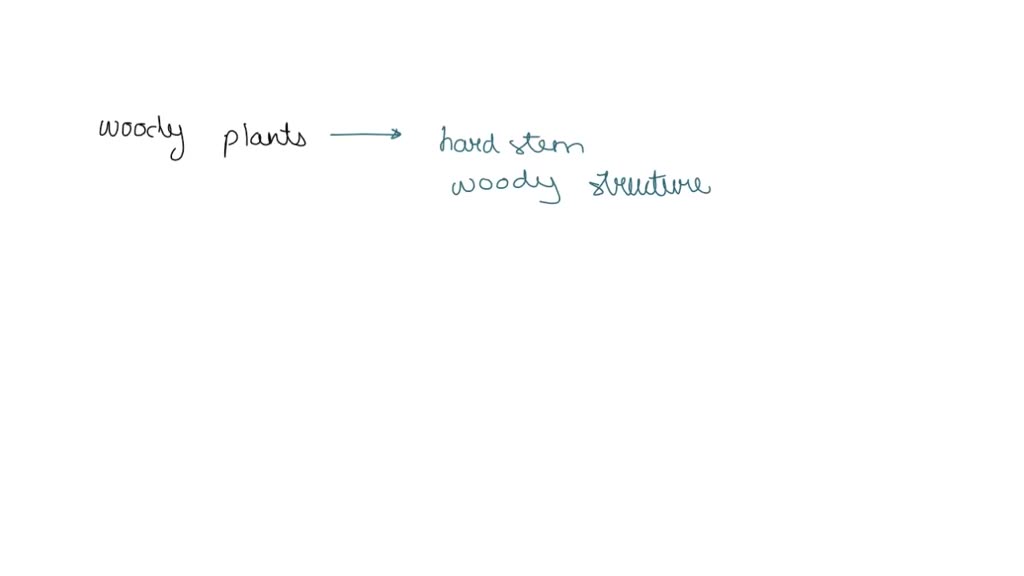 woody plants → hard stem
woody structure